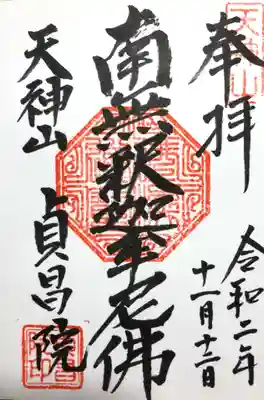 奉拝
令和二年
十一月十三日
南無釈迦牟尼佛
天神山
貞昌院
天神山